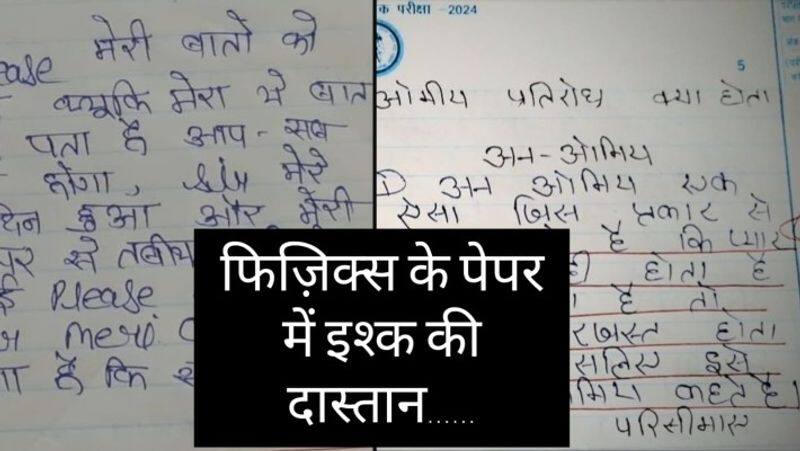 मेरी बातों को
ease
क्यूकि मेरा ये बात
पता है आप-सब
होगा, sir मेरे
हुआ और मेरी
से तबीय
Please
meri
है कि
क परीक्षा -2024
5
ओमीय प्रतिरोध क्या होता
अन-ओमिय
① अन ओमिय एक
ऐसा जिस प्रकार से
है कि प्यार
ही होता है
है तो
होता
इसे
कहते है।
परिसीमाए
फिज़िक्स के पेपर
में इश्क की
दास्तान......